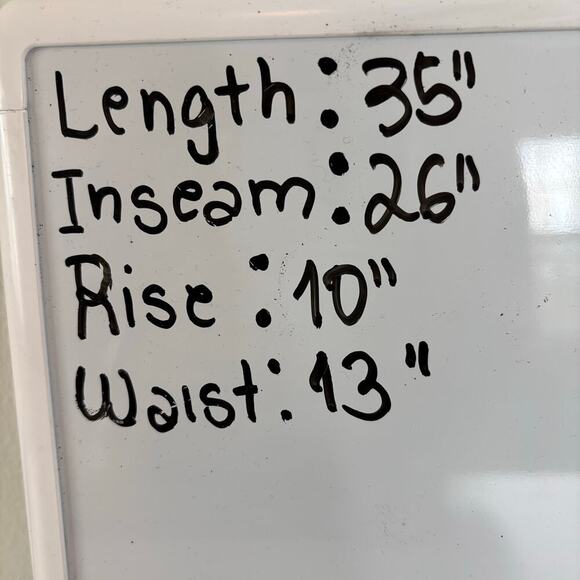 Length: 35"
Inseam: 26"
Rise: 10"
Waist: 13"